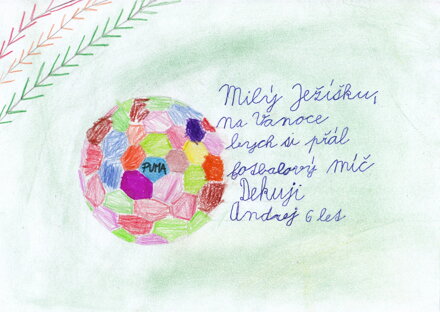 Milý Ježíšku,
na Vanoce
bych si přál
fotbalový míč
Dekuji
Andrej 6 let
PUMA